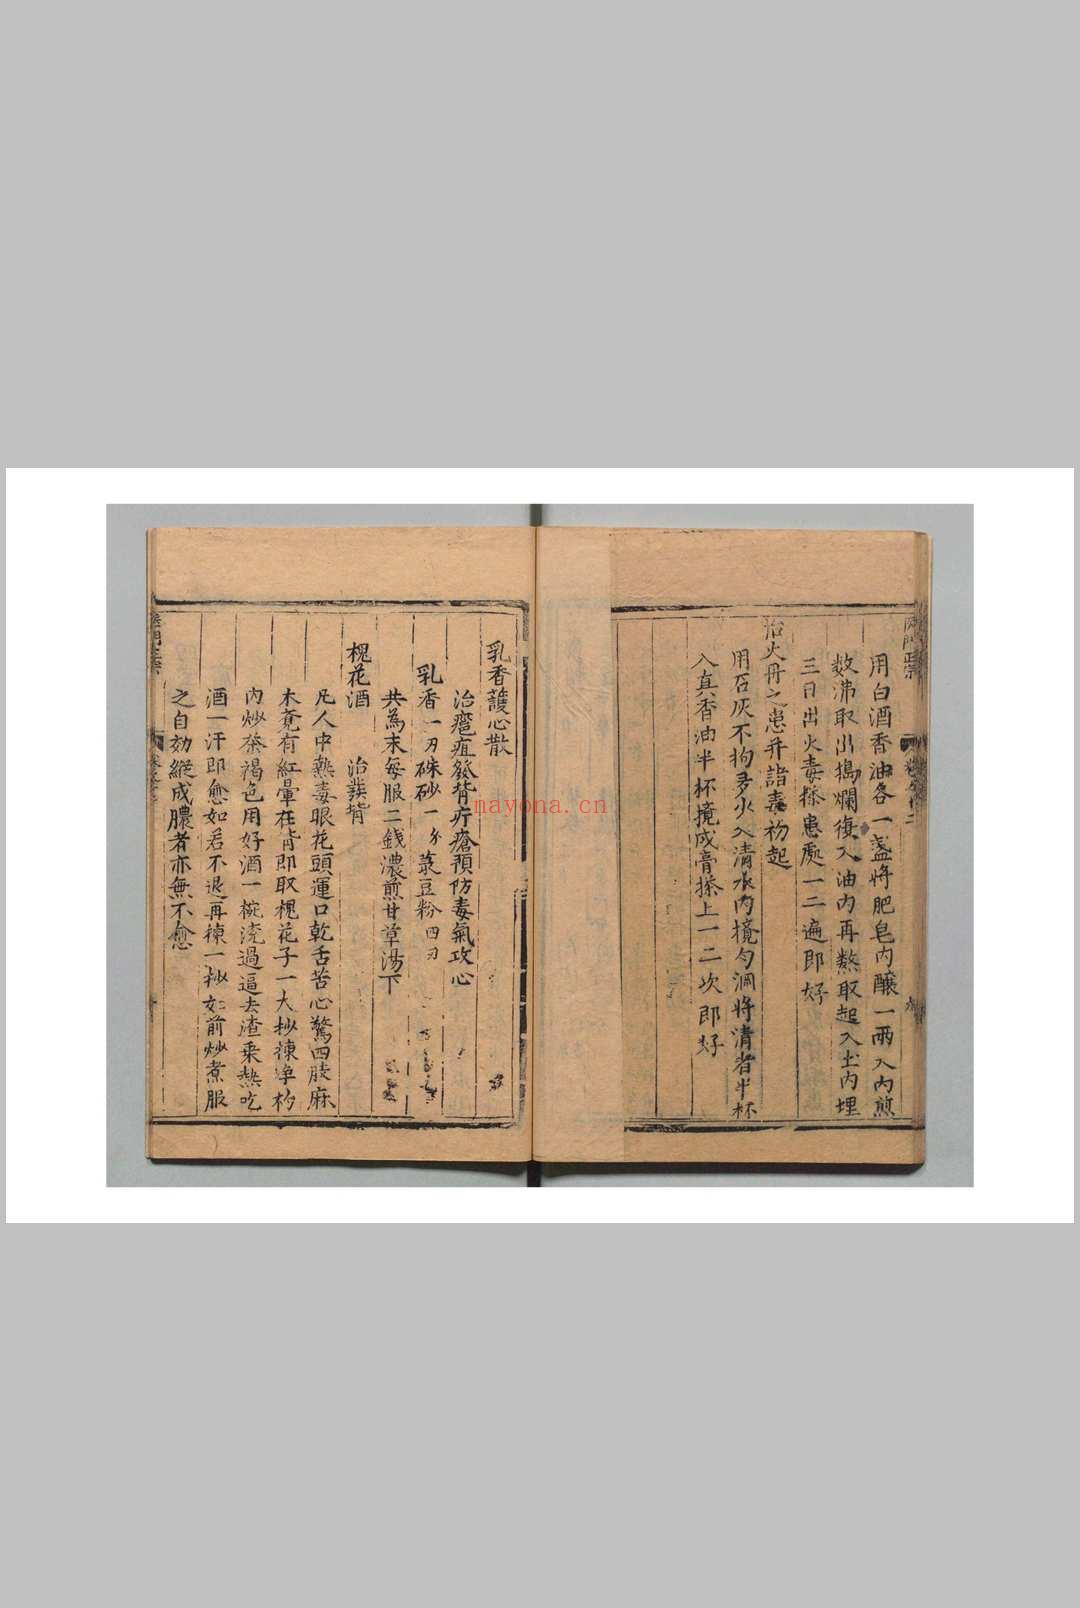 用白酒香油各一盞將肥皂內釀一兩入內煎
数沸取出搗爛復入油內再熬取起入土內埋
三日出火毒搽患處一二遍即好
治火丹之患并諸毒初起
用石灰不拘多少入清水內攪勻澗將清者半杯
入真香油半杯攪成膏搽上一二次即好
乳香護心散
治癰疽發背疔瘡預防毒氣攻心
乳香一刃硃砂一分菉豆粉四刃
共為末每服二錢濃煎甘草湯下
槐花酒 治發背
凡人中熱毒眼花頭運口乾舌苦心驚四肢麻
木覺有紅暈在背即取槐花子一大抄揀淨杓
內炒茶褐色用好酒一碗澆過逼去渣乘熱吃
酒一汗即愈如若不退再揀一抄如前炒煮服
之自効縱成膿者亦無不愈
門正宗
mayona.cn